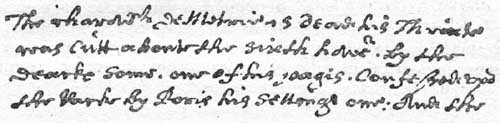 The charowich deMetries is Dead his Throate
was Cutt aboute the sixth howr. by the
deacks Some. one of his pagis. Confessed upo
the Racke by Boris his Settinge one: And the